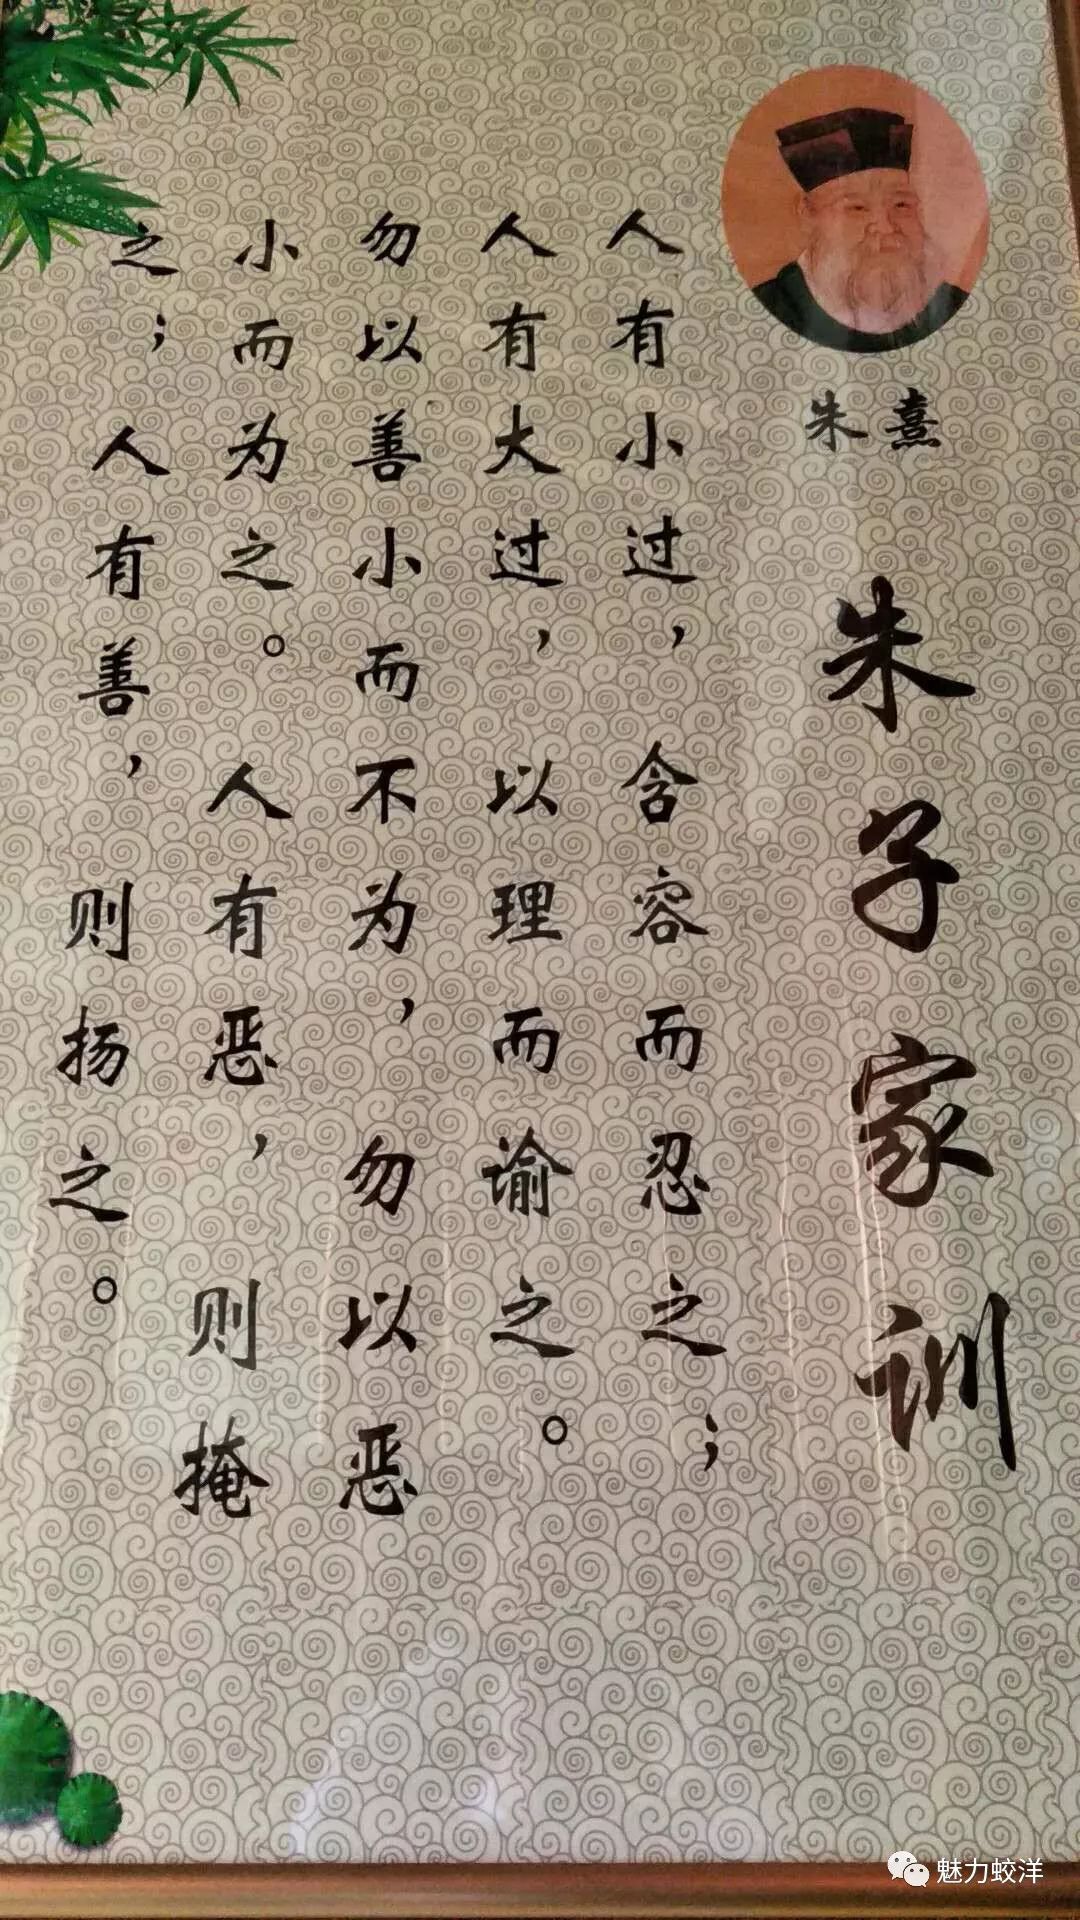 朱熹
朱子家训
人有小过，含容而忍之；
人有大过，以理而谕之。
勿以善小而不为，勿以恶
小而为之。人有恶，则掩
之；人有善，则扬之。
魅力蛟洋